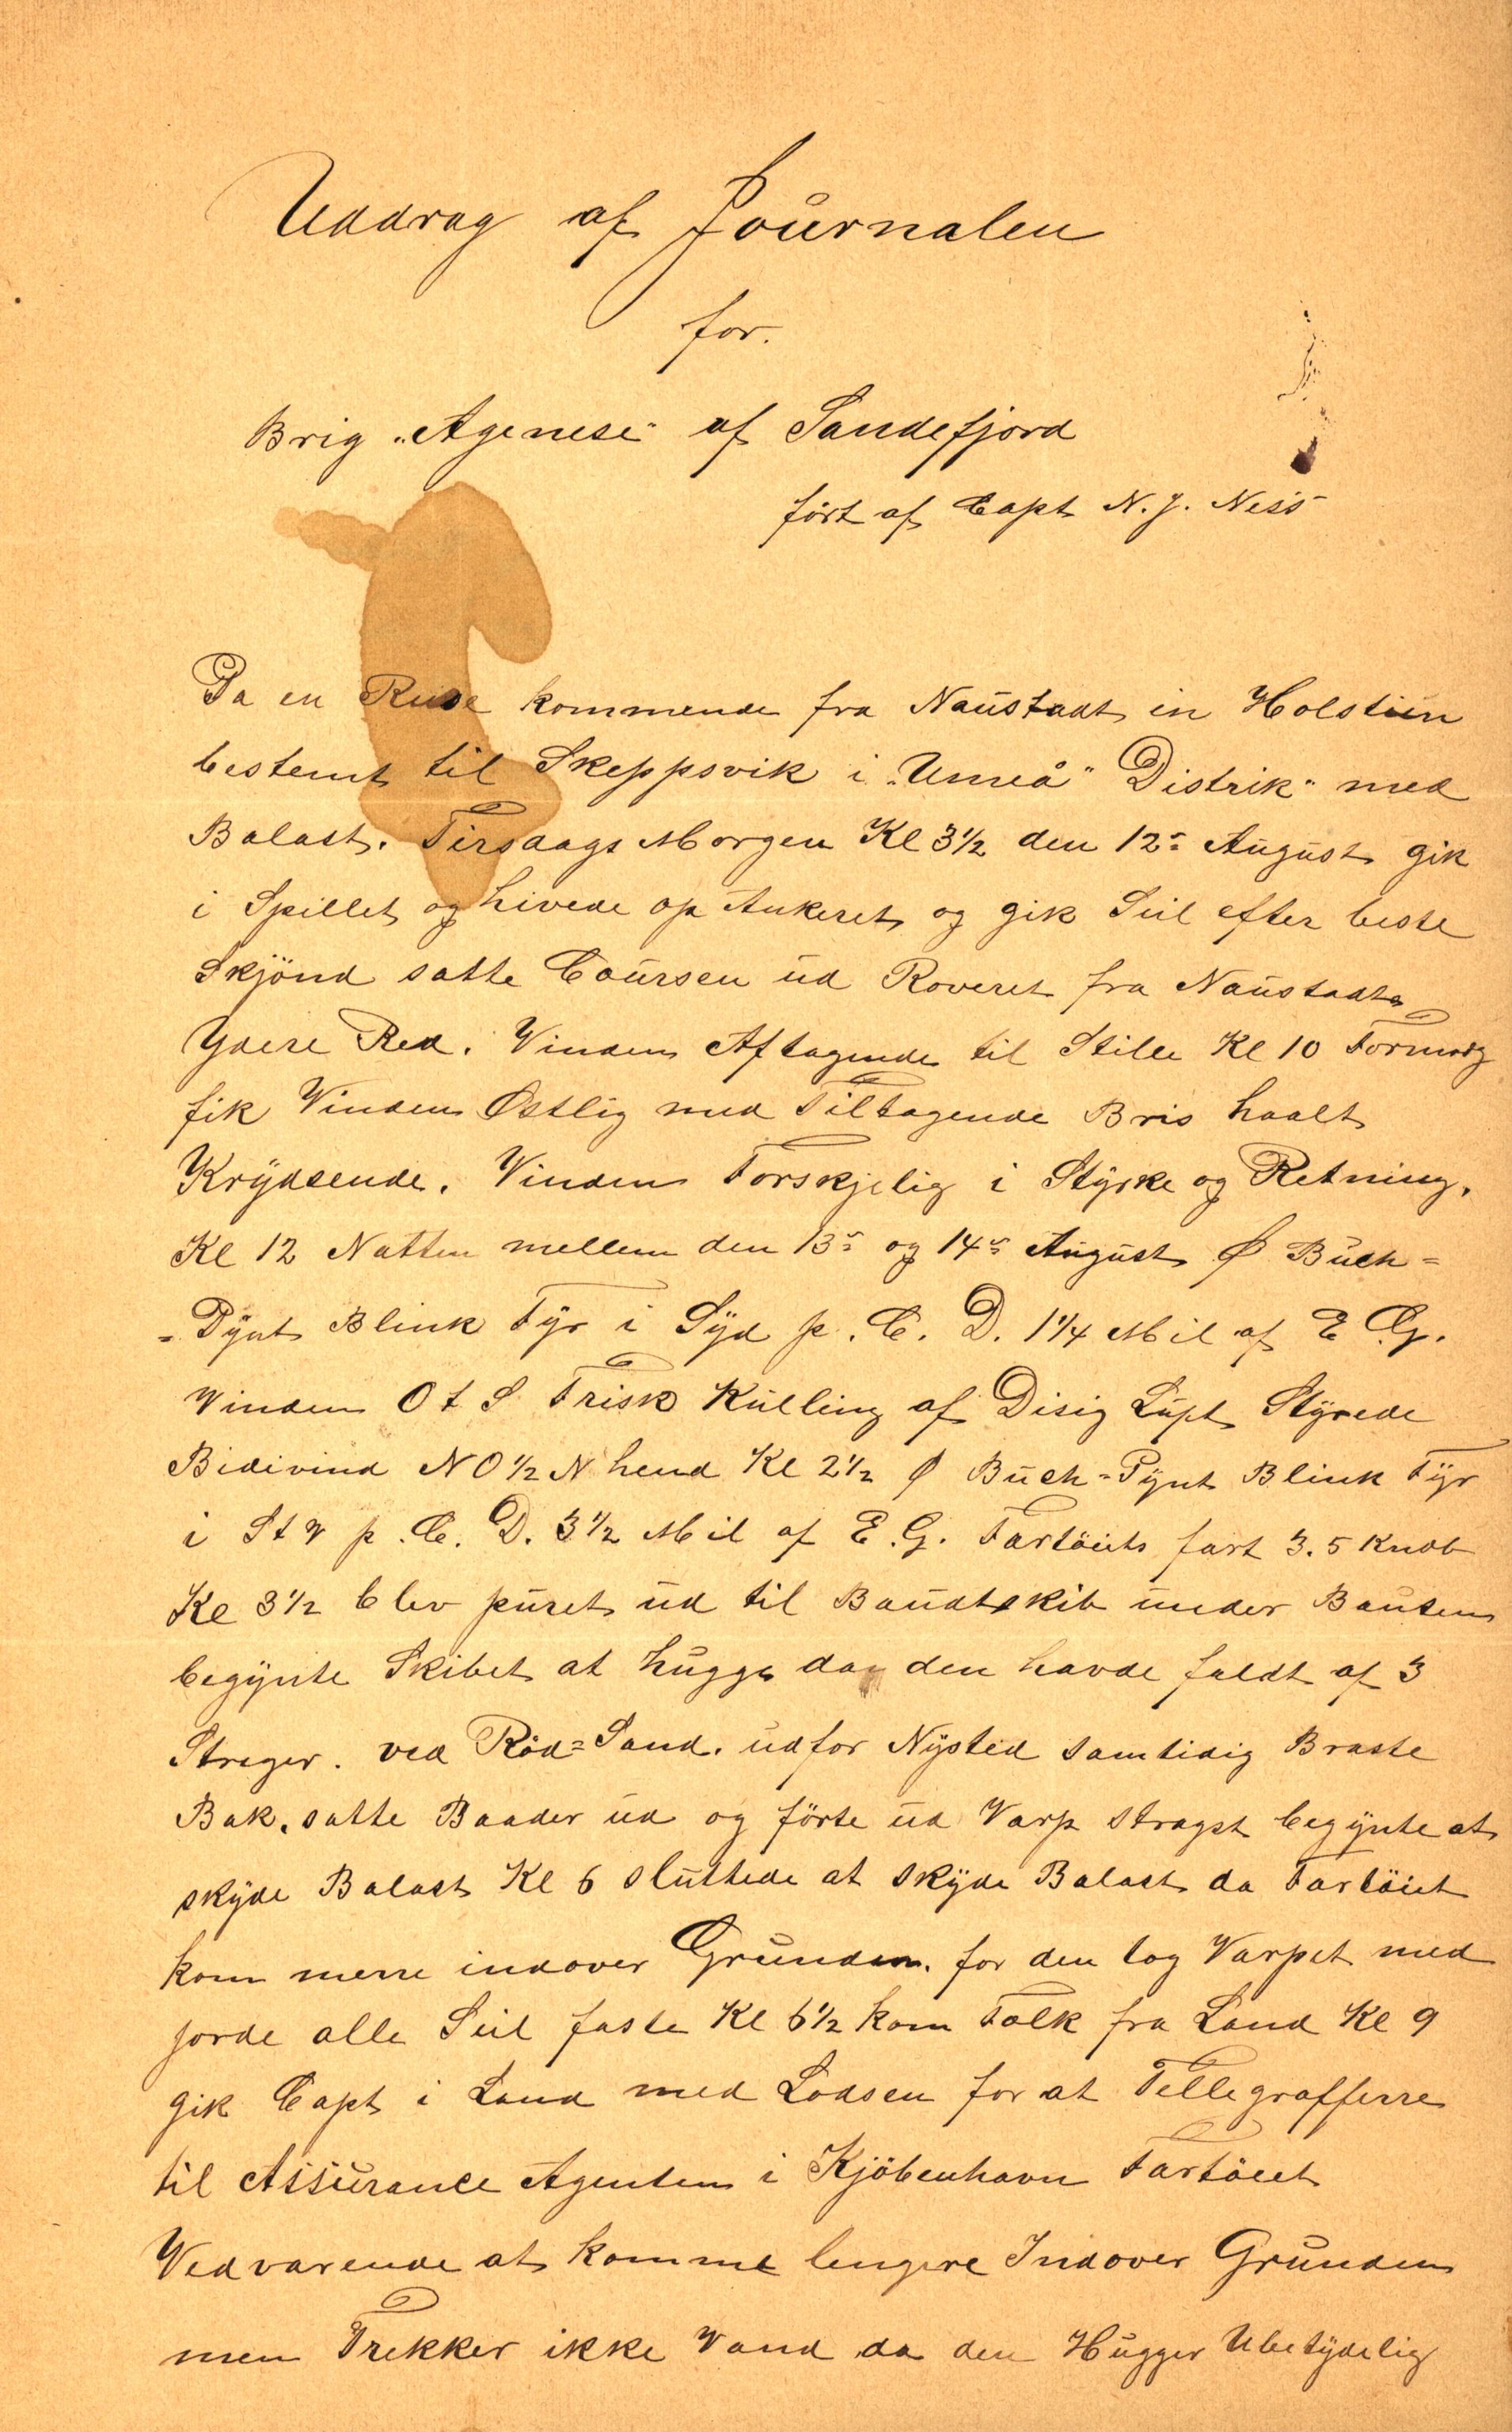 Uddrag af Journalen
for.
Brig "Agenese" af Sandefjord
ført af Capt N. J. Ness
Pa en Reise kommende fra Naustadt in Holstien
bestemt til Skeppsvik i "Umeå" Distrik" med
Balast. Tirsdags Morgen Kl 3½ den 12= August gik
i Spillet og hivede op Ankeret og gik Seil efter beste
Skjönd satte Coursen ud Roveret fra Naustadts
Ydere Red. Vinden Aftagende til Stille Kl 10 Formidg
fik Vinden Østlig med Tiltagende Bris haalt
Krydsende. Vinden Forskjelig i Styrke og Retning.
Kl 12 Natten mellem den 13= og 14= August Ø Buch=
=Pynt Blink Fyr i Syd p. C. D. 1¼ Mil af E G.
Vinden O t S Frisk Kulling af Disig Lupt Styrede
Bidivind N O ½ N hend Kl 2½ Ø Buch=Pynt Blink Fyr
i S t V p. C. D. 3½ Mil af E. G. Fartöiets fart 3.5 Knob
Kl 3½ blev puret ud til Baudtskib under Bausen
begynte Skibet at hugge da den havde faldt af 3
Streger. ved Röd=Sand. udfor Nysted samtidig Braste
Bak. satte Baader ud og förte ud Varp stragst begynte at
skyde Balast Kl 6 sluttede at skyde Balast da Fartöiet
kom merre indover Grunden. for den tog Varpet med
jorde alle Seil faste Kl 6½ kom Folk fra Land Kl 9
gik Capt i Land med Lodsen for at Tellegrafferre
til Assurance Agenten i Kjöbenhavn Fartöiet
Vedvarende at komme lengere Indover Grunden
men Trekker ikke Vand da den Hugger Ubetydelig